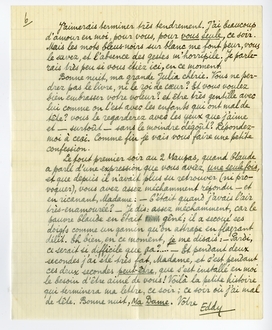 6
J'aimerais terminer très tendrement. J'ai beaucoup
d'amour en moi, pour vous, pour vous seule, ce soir.
Mais les mots bleus-noirs sur blanc me font peur, vous
le savez, et l'absence des gestes m'horripile. Je parle-
rais très peu si vous étiez ici, en ce moment.
Bonne nuit, ma grande Julia chérie. Vous ne per-
drez pas le livre, ni le sac de cœur? Et vous voulez
bien embrasser votre voleur? et être très gentille avec
lui comme on l'est avec les enfants qui ont mal de
tête? vous le regarderez avec les yeux que j'aime
et — surtout — sans le moindre dégoût? Répondez-
moi à ceci. Comme fin je vais vous faire une petite
confession.
Le tout premier soir au 2 Maupas, quand Claude
a parlé d'une expression que vous aviez, une seule fois,
et que depuis il n'avait plus su retrouver (ni pro-
voquer), vous avez assez méchamment répondu — et
en ricanant, Madame: — c'était quand j'avais l'air
très-enamourée! — Je dis: assez méchamment, car le
pauvre Claude en était gêné; il a secoué ses
doigts comme un gamin qu'on attrape en flagrant
délit. Eh bien, en ce moment, je me disais: — Pardi,
ce serait si difficile que ça? — Et pendant deux
secondes j'ai été très fat, Madame, et c'est pendant
ces deux secondes peut-être, que s'est installé en moi
le besoin d'être aimé de vous! Voilà la petite histoire
qui terminera ma lettre, ce soir: ce soir où j'ai mal
de tête. Bonne nuit, Ma Dame. Votre
Eddy